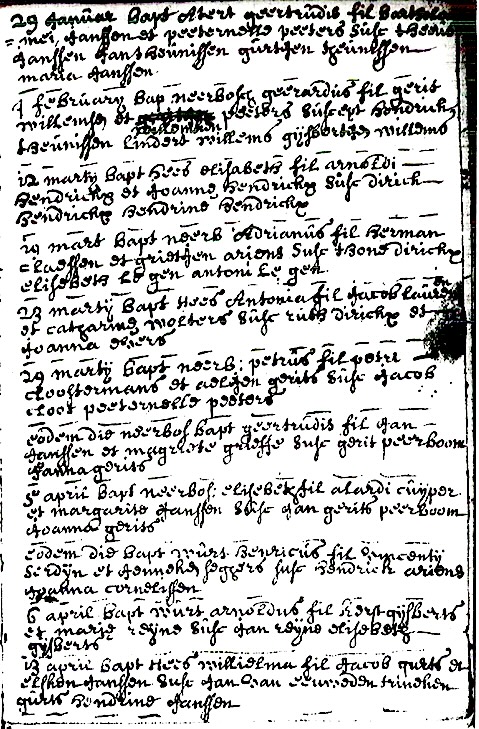 29 Januar bapt Atert geertrudis fil bartholo
= mei Janssen et peeternelle peeters susc theeus
Janssen Jantheunissen gurtjen theunissen
maria Janssen
4 february bap neerbosch geerardus fil gerit
willemsen et peeters suscept hendrick
willemken
theunissen lindert willems gysbertjen willems
12 marty bapt hees elisabeth fil arnoldi
hendrickx et Joanna hendrickx susc dirick
hendrickx hendrina hendrickx
19 mart bapt neerb Adrianus fil herman
claessen et grietjen ariens susc thone dirickx
elisebeth le gen antoni le gen
23 marty bapt hees Antonia fil Jacob
et catharina wolters susc ruth dirickx et
Joanna evers
29 marty bapt neerb: petrus fil petri
cloostermans et aeltjen gerits susc Jacob
cloot peeternelle peeters
eodem die neerbos bapt geertrudis fil Jan
Janssen et magriete susc gerit peerboom
Janna gerits
5 april bapt neerbos: elisebeth fil alardi cuyper
et margarita Janssen susc Jan gerits peerboom
Joanna gerits
eodem die bapt wurt henricus fil vincenty
et Jenneken seggers susc hendrick ariens
Joanna cornelissen
6 april bapt wurt arnoldus fil kerst gysberts
et marie reyne susc Jan reyne elisebeth
gysberts
13 april bapt hees willielma fil Jacob gurts et
elsken Janssen susc Jan van eeuweden trineken
gurts hendrina Janssen